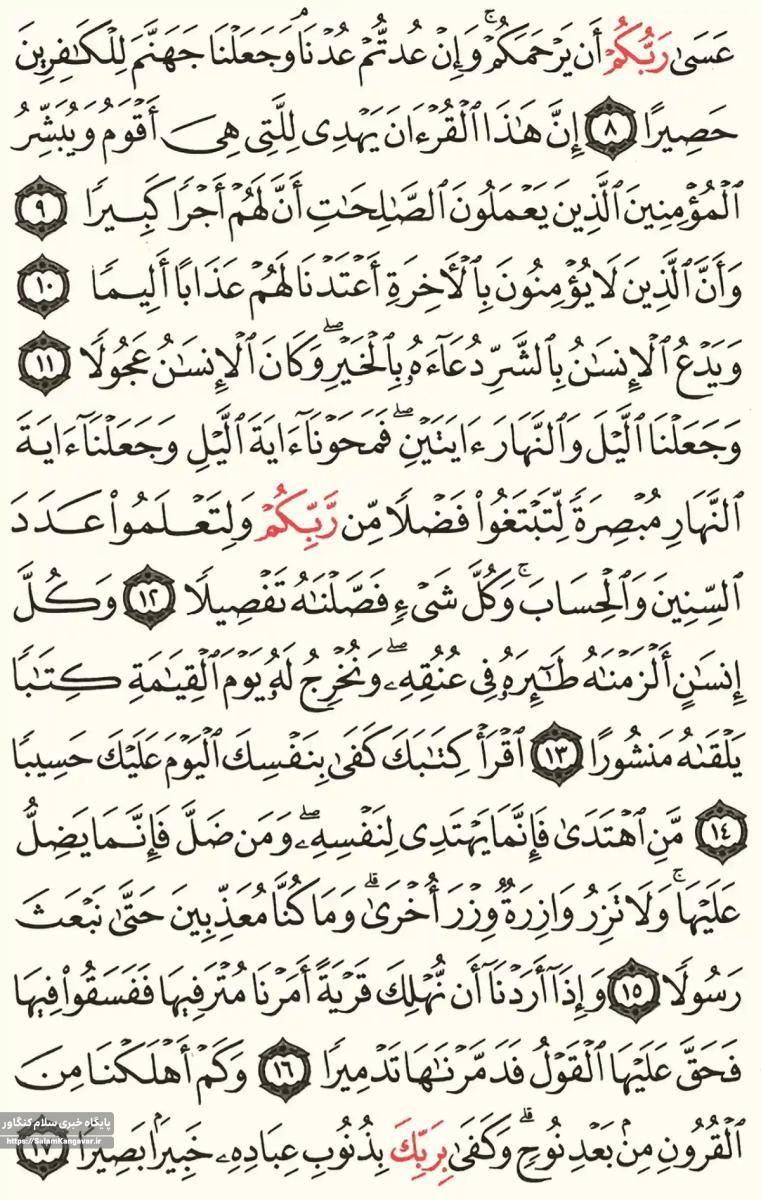 عَسَىٰ رَبُّكُمْ أَن يَرْحَمَكُمْ ۚ وَإِنْ عُدتُّمْ عُدْنَا ۘ وَجَعَلْنَا جَهَنَّمَ لِلْكَٰفِرِينَ
حَصِيرًا ٨ إِنَّ هَٰذَا ٱلْقُرْءَانَ يَهْدِى لِلَّتِى هِىَ أَقْوَمُ وَيُبَشِّرُ
ٱلْمُؤْمِنِينَ ٱلَّذِينَ يَعْمَلُونَ ٱلصَّٰلِحَٰتِ أَنَّ لَهُمْ أَجْرًا كَبِيرًا ٩
وَأَنَّ ٱلَّذِينَ لَا يُؤْمِنُونَ بِٱلْأَخِرَةِ أَعْتَدْنَا لَهُمْ عَذَابًا أَلِيمًا ١٠
وَيَدْعُ ٱلْإِنسَٰنُ بِٱلشَّرِّ دُعَآءَهُۥ بِٱلْخَيْرِ ۖ وَكَانَ ٱلْإِنسَٰنُ عَجُولًا ١١
وَجَعَلْنَا ٱلَّيْلَ وَٱلنَّهَارَ ءَايَتَيْنِ ۖ فَمَحَوْنَآ ءَايَةَ ٱلَّيْلِ وَجَعَلْنَآ ءَايَةَ
ٱلنَّهَارِ مُبْصِرَةً لِّتَبْتَغُوا۟ فَضْلًا مِّن رَّبِّكُمْ وَلِتَعْلَمُوا۟ عَدَدَ
ٱلسِّنِينَ وَٱلْحِسَابَ ۚ وَكُلَّ شَىْءٍ فَصَّلْنَٰهُ تَفْصِيلًا ١٢ وَكُلَّ
إِنسَٰنٍ أَلْزَمْنَٰهُ طَٰٓئِرَهُۥ فِى عُنُقِهِۦ ۖ وَنُخْرِجُ لَهُۥ يَوْمَ ٱلْقِيَٰمَةِ كِتَٰبًا
يَلْقَىٰهُ مَنشُورًا ١٣ ٱقْرَأْ كِتَٰبَكَ كَفَىٰ بِنَفْسِكَ ٱلْيَوْمَ عَلَيْكَ حَسِيبًا
١٤ مَّنِ ٱهْتَدَىٰ فَإِنَّمَا يَهْتَدِى لِنَفْسِهِۦ ۖ وَمَن ضَلَّ فَإِنَّمَا يَضِلُّ
عَلَيْهَا ۚ وَلَا تَزِرُ وَازِرَةٌ وِزْرَ أُخْرَىٰ ۗ وَمَا كُنَّا مُعَذِّبِينَ حَتَّىٰ نَبْعَثَ
رَسُولًا ١٥ وَإِذَآ أَرَدْنَآ أَن نُّهْلِكَ قَرْيَةً أَمَرْنَا مُتْرَفِيهَا فَفَسَقُوا۟ فِيهَا
فَحَقَّ عَلَيْهَا ٱلْقَوْلُ فَدَمَّرْنَٰهَا تَدْمِيرًا ١٦ وَكَمْ أَهْلَكْنَا مِنَ
ٱلْقُرُونِ مِنۢ بَعْدِ نُوحٍ ۗ وَكَفَىٰ بِرَبِّكَ بِذُنُوبِ عِبَادِهِۦ خَبِيرًۢا بَصِيرًا ١٧
پایگاه خبری سلام کنگاور
https://SalamKangavar.ir